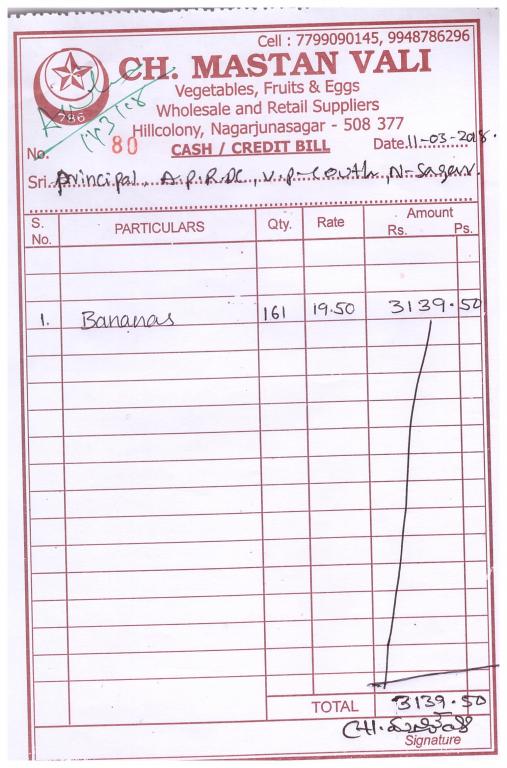 Cell : 7799090145, 9948786296
CH. MASTAN VALI
786
Vegetables, Fruits & Eggs
Wholesale and Retail Suppliers
Hillcolony, Nagarjunasagar - 508 377
No. 80 CASH / CREDIT BILL Date. 11-03-2018.
Sri. Principal, A.P.R.DC, V.P-South, N-Sagar.
S. No. PARTICULARS Qty. Rate Amount Rs. Ps.
1. Bananas 161 19.50 3139.50
TOTAL 3139.50
CH.
Signature